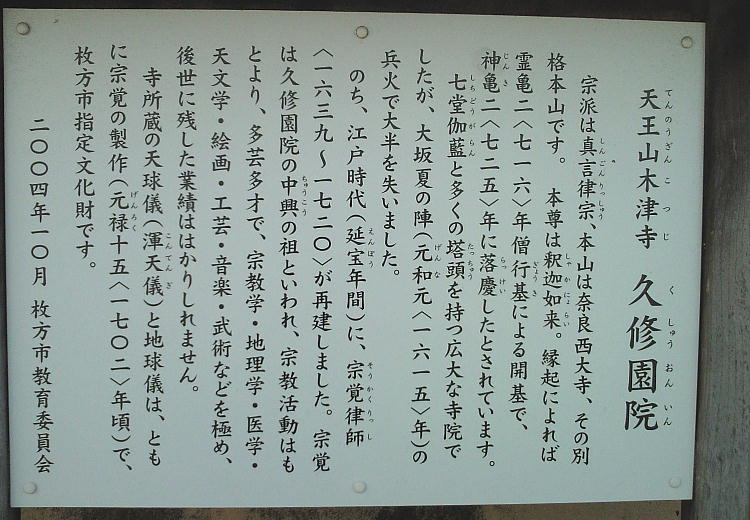 天王山木津寺 久修園院
宗派は真言律宗、本山は奈良西大寺、その別
格本山です。 本尊は釈迦如来。縁起によれば
霊亀二〈七一六〉年僧行基による開基で、
神亀二〈七二五〉年に落慶したとされています。
七堂伽藍と多くの塔頭を持つ広大な寺院で
したが、大坂夏の陣(元和元〈一六一五〉年)の
兵火で大半を失いました。
のち、江戸時代(延宝年間)に、宗覚律師
〈一六三九〜一七二〇〉が再建しました。宗覚
は久修園院の中興の祖といわれ、宗教活動はも
とより、多芸多才で、宗教学・地理学・医学・
天文学・絵画・工芸・音楽・武術などを極め、
後世に残した業績ははかりしれません。
寺所蔵の天球儀(渾天儀)と地球儀は、とも
に宗覚の製作(元禄十五〈一七〇二〉年頃)で、
枚方市指定文化財です。
二〇〇四年一〇月 枚方市教育委員会